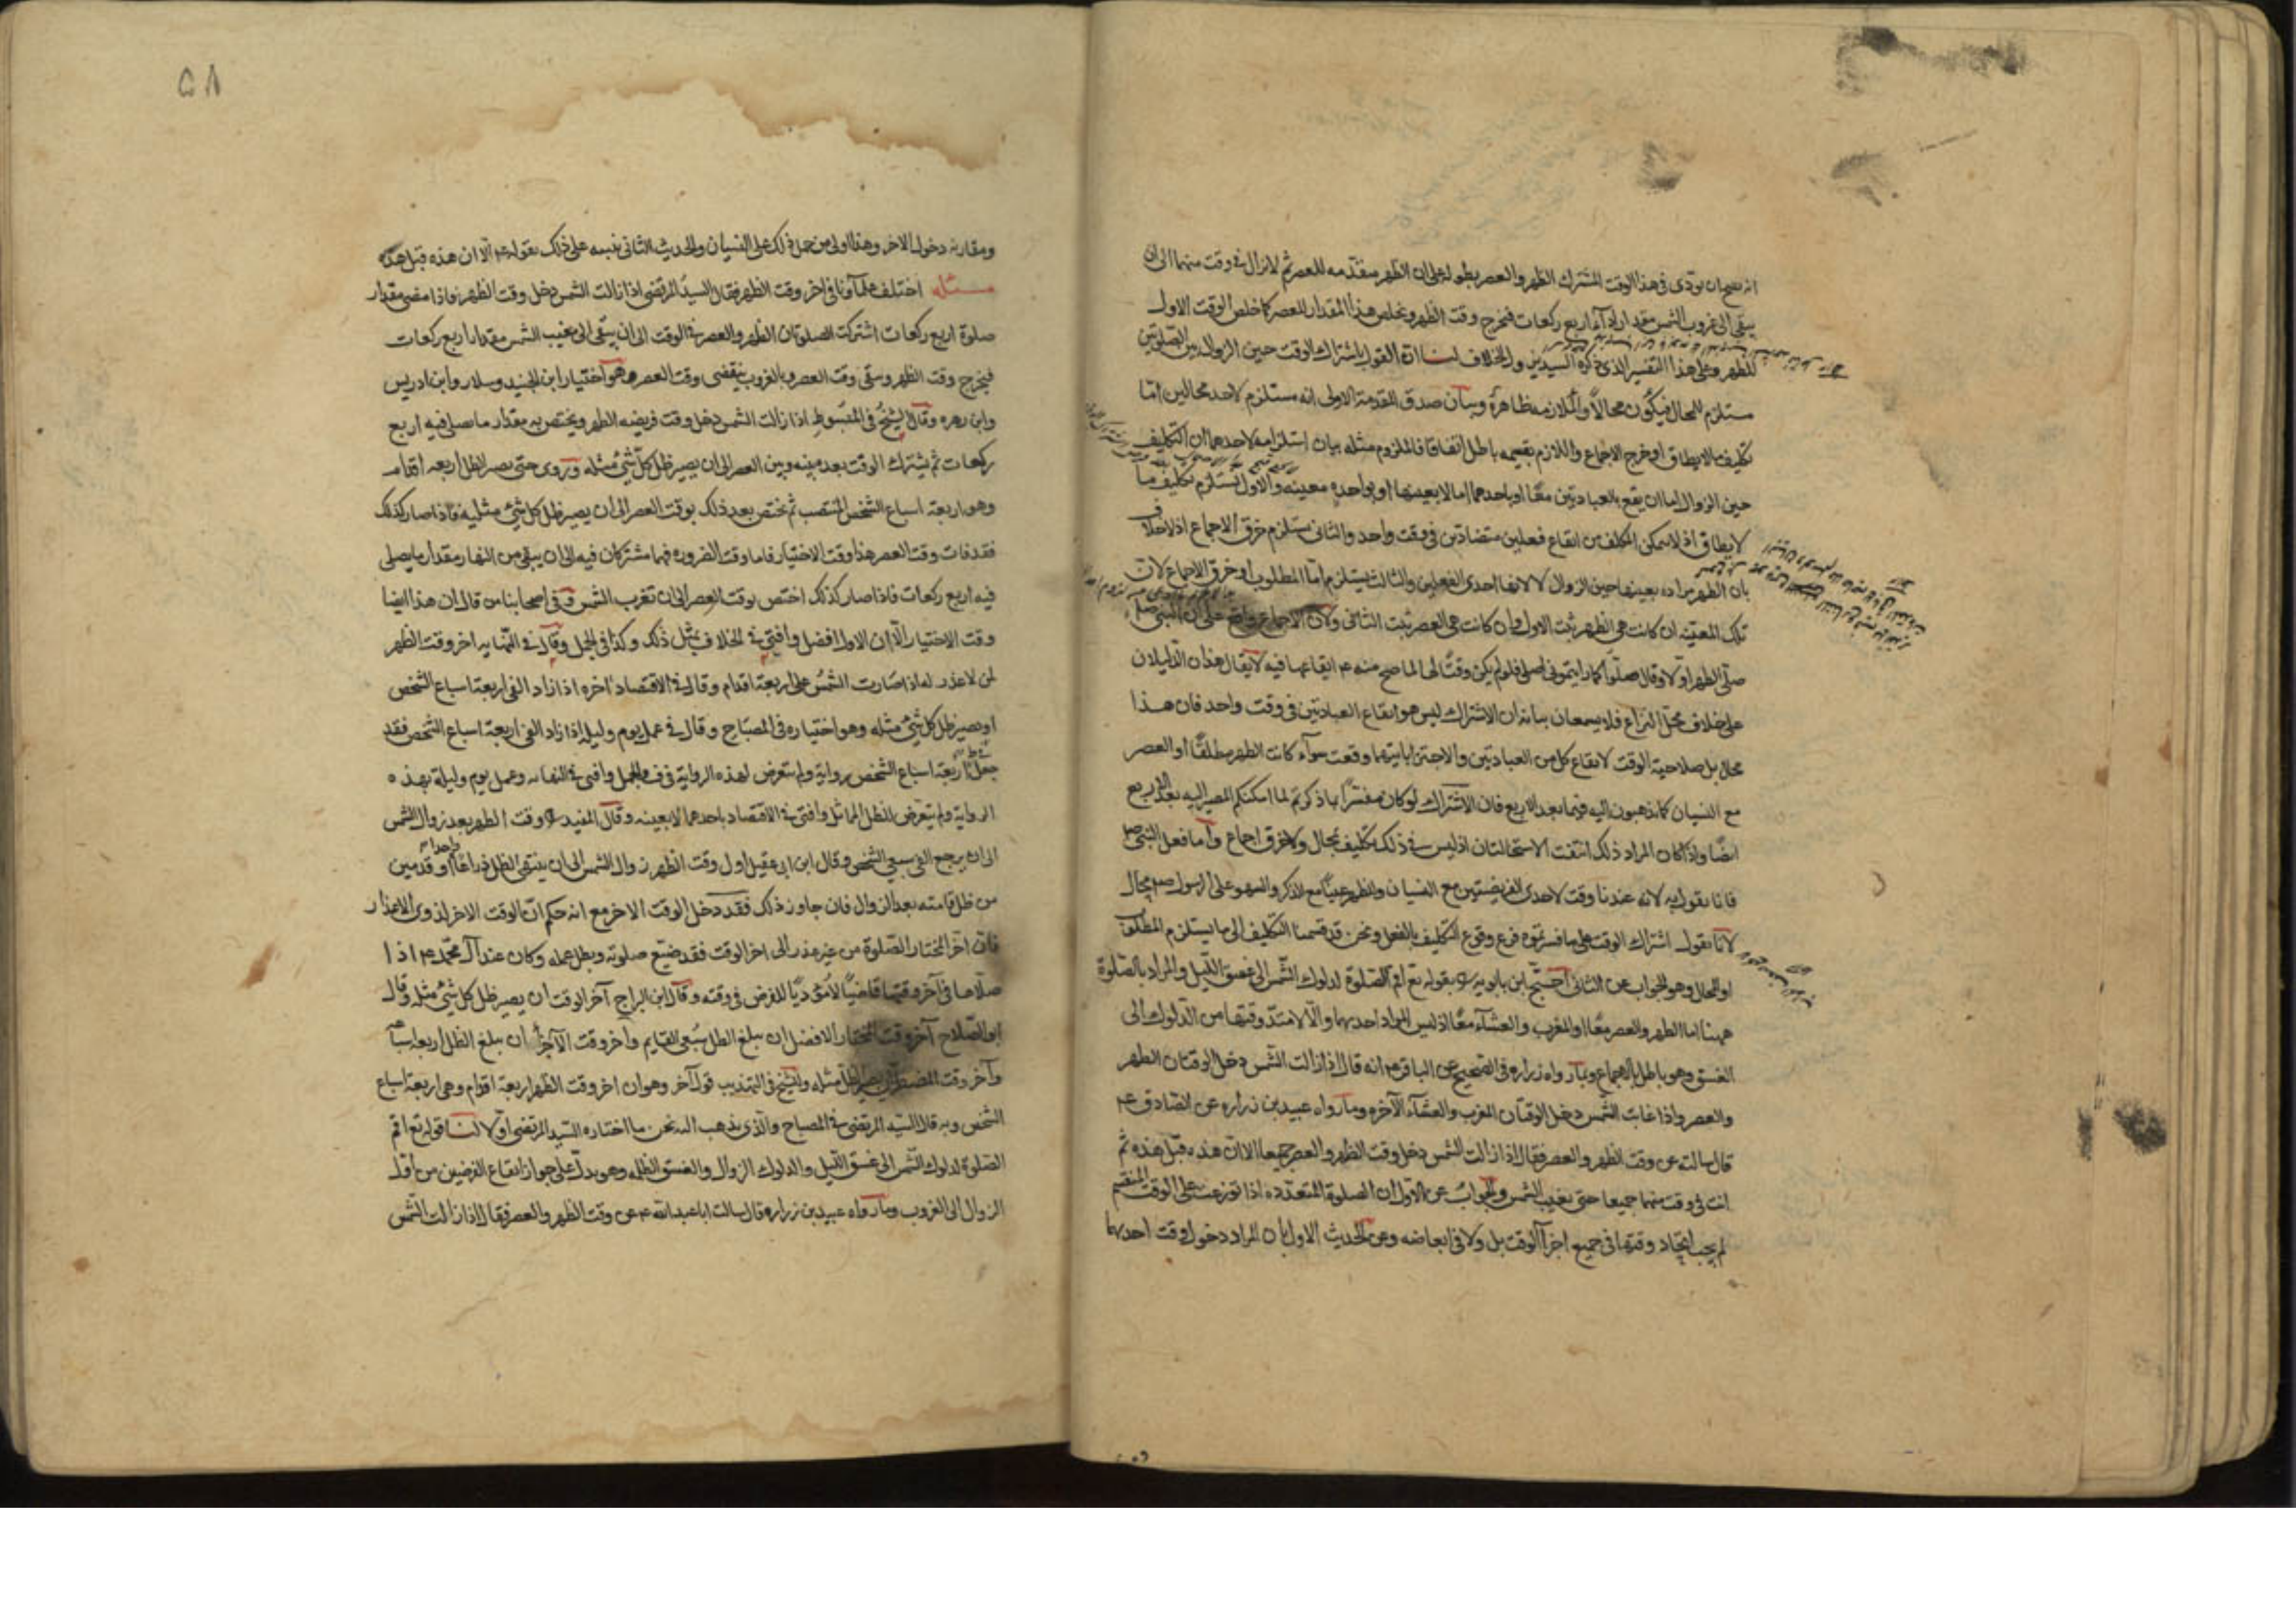 انه يصح ان يؤدى في هذا الوقت المشترك الظهر والعصر بطوله على ان الظهر متقدمه للعصر ثم لا تزال في وقت منهما الى ان
يبقى الى غروب الشمس مقدار اداء اربع ركعات فيخرج وقت الظهر ويخلص هذا المقدار للعصر كما خلص الوقت الاول
للظهر وعلى هذا التفسير الذي ذكره السيد يزول الخلاف لنا ان القول باشتراك الوقت حين الزوال بين الصلوتين
مستلزم للمحال فيكون محالا والملازمه ظاهرة وبيان صدق المقدمة الاولى انه مستلزم لاحد محالين اما
تكليف مالايطاق او خرج الاجماع واللازم بقسميه باطل اتفاقا فالملزوم مثله بيان استلزامه لاحدهما ان التكليف
حين الزوال اما ان يقع بالعبادتين معا او باحدهما اما لا بعينها او بواحده معينه والاول يستلزم تكليف ما
لايطاق اذ لايتمكن المكلف من ايقاع فعلين متضادين في وقت واحد والثاني يستلزم خرق الاجماع اذ لا خلاف
بان الظهر مراده بعينها حين الزوال لا لانها احدى الفعلين والثالث يستلزم اما المطلوب او خرق الاجماع لان
تلك المعينه ان كانت هي الظهر ثبت الاول وان كانت هي العصر ثبت الثاني ولان الاجماع واقع على ان النبي ص
صلى الظهر اولا وقال صلوا كما رايتموني اصلي فلو لم يكن وقتا لها لما صح منه ع ايقاعها فيه لايقال هذان الدليلان
على خلاف محل النزاع فلا يسمعان بيانه ان الاشتراك ليس هو ايقاع العبادتين في وقت واحد فان هذا
محال بل صلاحية الوقت لايقاع كل من العبادتين والاجتزا بايتهما وقعت سوآء كانت الظهر مطلقا او العصر
مع النسيان كما تذهبون اليه فيما بعد الاربع فان الاشتراك لو كان مفسرا بما ذكرتم لما امكنكم المصير اليه بعد الاربع
ايضا واذا كان المراد ذلك انتفت الاستحالتان اذ ليس في ذلك تكليف بمحال ولا خرق اجماع واما فعل النبي ص
فانا نقول به لانه عندنا وقت لاحدى الفريضتين مع النسيان وللظهر عينا مع الذكر والسهو على الرسول ص محال
لانا نقول اشتراك الوقت على ما فسرتموه فرع وقوع التكليف بالفعل ونحن قد قسمنا التكليف الى ما يستلزم المطلوب
او المحال وهو الجواب عن الثاني احتج ابن بابويه ره بقوله تع اقم الصلوة لدلوك الشمس الى غسق الليل والمراد بالصلوة
ههنا اما الظهر والعصر معا او المغرب والعشآء معا اذ ليس المراد احديهما والا لامتد وقتها من الدلوك الى
الغسق وهو باطل بالاجماع وبما رواه زراره في الصحيح عن الباقر ع انه قال اذا زالت الشمس دخل الوقتان الظهر
والعصر واذا غابت الشمس دخل الوقتان المغرب والعشآء الآخره وما رواه عبيد بن زراره عن الصادق ع
قال سالته عن وقت الظهر والعصر فقال اذا زالت الشمس دخل وقت الظهر والعصر جميعا الا ان هذه قبل هذه ثم
انت في وقت منهما جميعا حتى تغيب الشمس والجواب عن الاول ان الصلوة المتعدده اذا توزعت على الوقت المنقسم
لم يجب اتحاد وقتها في جميع اجزآ الوقت بل ولا في ابعاضه وعن الحديث الاول بان المراد دخول وقت احديهما
٥٨
ومقاربه دخول الاخر وهذا اولى من حمل ذلك على النسيان والحديث الثاني نبه على ذلك بقوله ع الا ان هذه قبل هذه
مسئله اختلف علمآونا في اخر وقت الظهر فقال السيد المرتضى اذا زالت الشمس دخل وقت الظهر فاذا مضى مقدار
صلوة اربع ركعات اشتركت الصلوتان الظهر والعصر في الوقت الى ان يبقى الى مغيب الشمس مقدار اربع ركعات
فيخرج وقت الظهر وبقى وقت العصر وبالغروب ينقضى وقت العصر وهو اختيار ابن الجنيد وسلار وابن ادريس
وابن زهره وقال الشيخ في المبسوط اذا زالت الشمس دخل وقت فريضه الظهر ويختص به مقدار ما يصلى فيه اربع
ركعات ثم يشترك الوقت بعد بينه وبين العصر الى ان يصير ظل كل شئ مثله وروى حتى يصير الظل اربعه اقدام
وهو اربعة اسباع الشخص المنتصب ثم يختص بعد ذلك بوقت العصر الى ان يصير ظل كل شئ مثليه فاذا صار كذلك
فقد فات وقت العصر هذا وقت الاختيار فاما وقت الضروره فهما مشتركان فيه الى ان يبقى من النهار مقدار ما يصلى
فيه اربع ركعات فاذا صار كذلك اختص بوقت العصر الى ان تغرب الشمس وفي اصحابنا من قال ان هذا ايضا
وقت الاختيار الا ان الاول افضل وافتى في الخلاف بمثل ذلك وكذا في الجمل وقال في النهايه اخر وقت الظهر
لمن لا عذر له اذا صارت الشمس على اربعة اقدام وقال في الاقتصاد اخره اذا زاد الفي اربعة اسباع الشخص
او يصير ظل كل شئ مثله وهو اختياره في المصباح وقال في عمل يوم وليلة اذا زاد الفى اربعة اسباع الشخص فقد
جعل في ط اربعة اسباع الشخص رواية ولم يتعرض لهذه الرواية في ف والجمل وافتى في النهايه وعمل يوم وليلة بهذه
الرواية ولم يتعرض للظل المماثل وافتى في الاقتصاد باحدهما لا بعينه وقال المفيد ره وقت الظهر بعد زوال الشمس
الى ان يرجع الفي سبعي الشخص وقال ابن ابي عقيل اول وقت الظهر زوال الشمس الى ان ينتهي الظل ذراعا واحدا او قدمين
من ظل قامته بعد الزوال فان جاوز ذلك فقد دخل الوقت الاخر مع انه حكم ان الوقت الاخر لذوى الاعذار
فان اخر المختار الصلوة من غير عذر الى اخر الوقت فقد ضيع صلوته وبطل عمله وكان عند آل محمد ع اذا
صلاها في آخر وقتها قاضيا لا مؤديا للفرض في وقته وقال ابن البراج آخر الوقت ان يصير ظل كل شئ مثله وقال
ابو الصلاح آخر وقت المختار الافضل ان يبلغ الظل سبعي القايم وآخر وقت الاجزا ان يبلغ الظل اربعة اسباعه
وآخر وقت المضطر ان يصير الظل مثله وللشيخ في التهذيب قول آخر وهو ان اخر وقت الظهر اربعة اقدام وهي اربعة اسباع
الشخص وبه قال السيد المرتضى في المصباح والذي نذهب اليه نحن ما اختاره السيد المرتضى اولا لنا قوله تع اقم
الصلوة لدلوك الشمس الى غسق الليل والدلوك الزوال والغسق الظلمه وهو يدل على جواز ايقاع الفرضين من اول
الزوال الى الغروب وما رواه عبيد بن زراره قال سالت ابا عبد الله ع عن وقت الظهر والعصر فقال اذا زالت الشمس